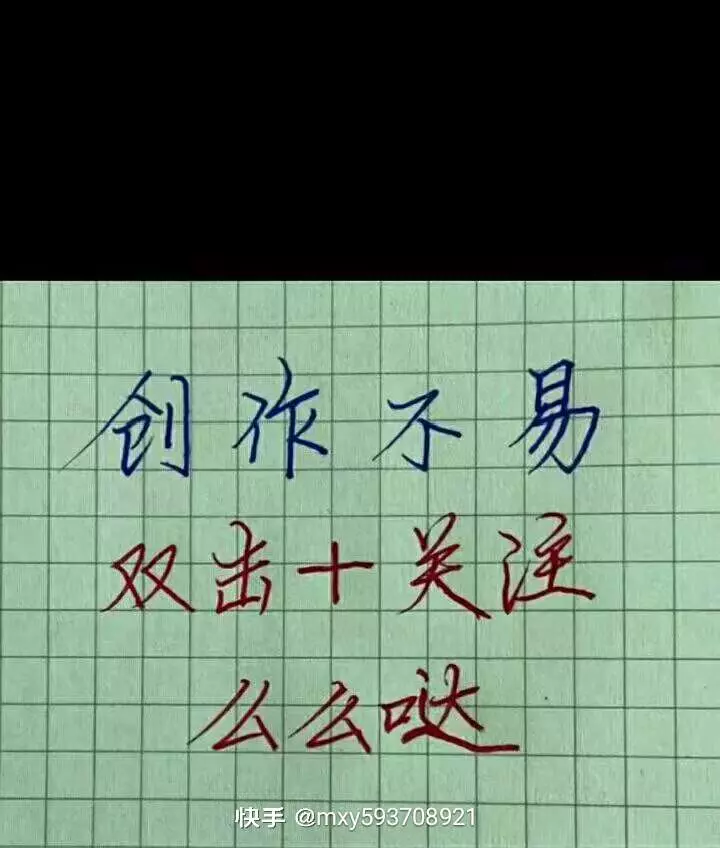 创作不易
双击+关注
么么哒
快手 @mxy593708921